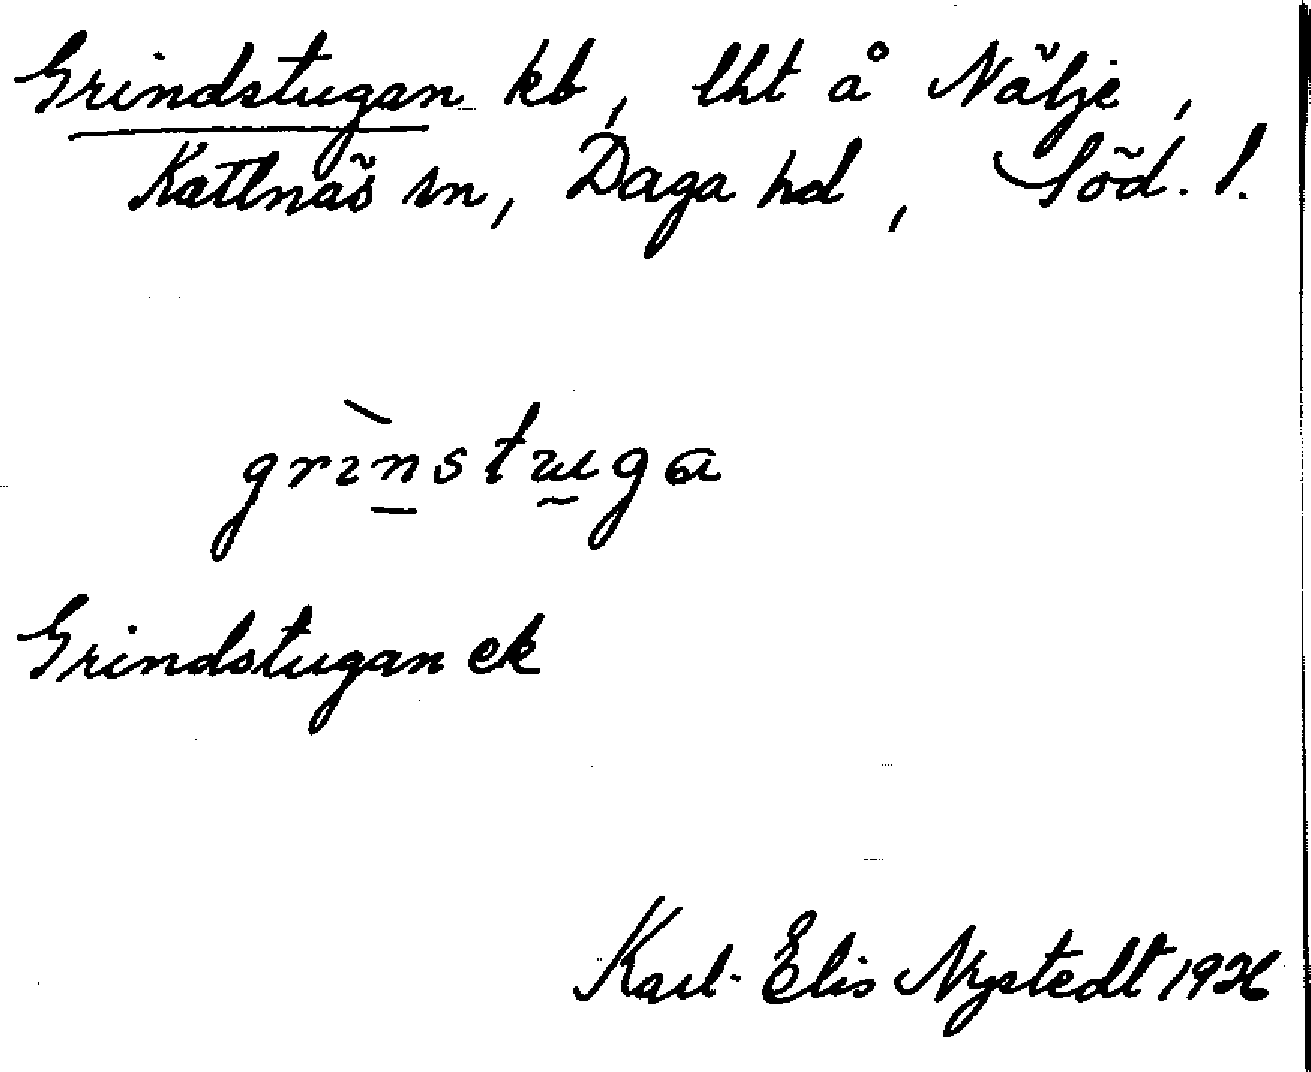 Grindstugan kb, lht å Nälje,
Kattnäs sn, Daga hd, Söd. l.
grìnstuga
Grindstugan ek
Karl-Elis Nystedt 1926